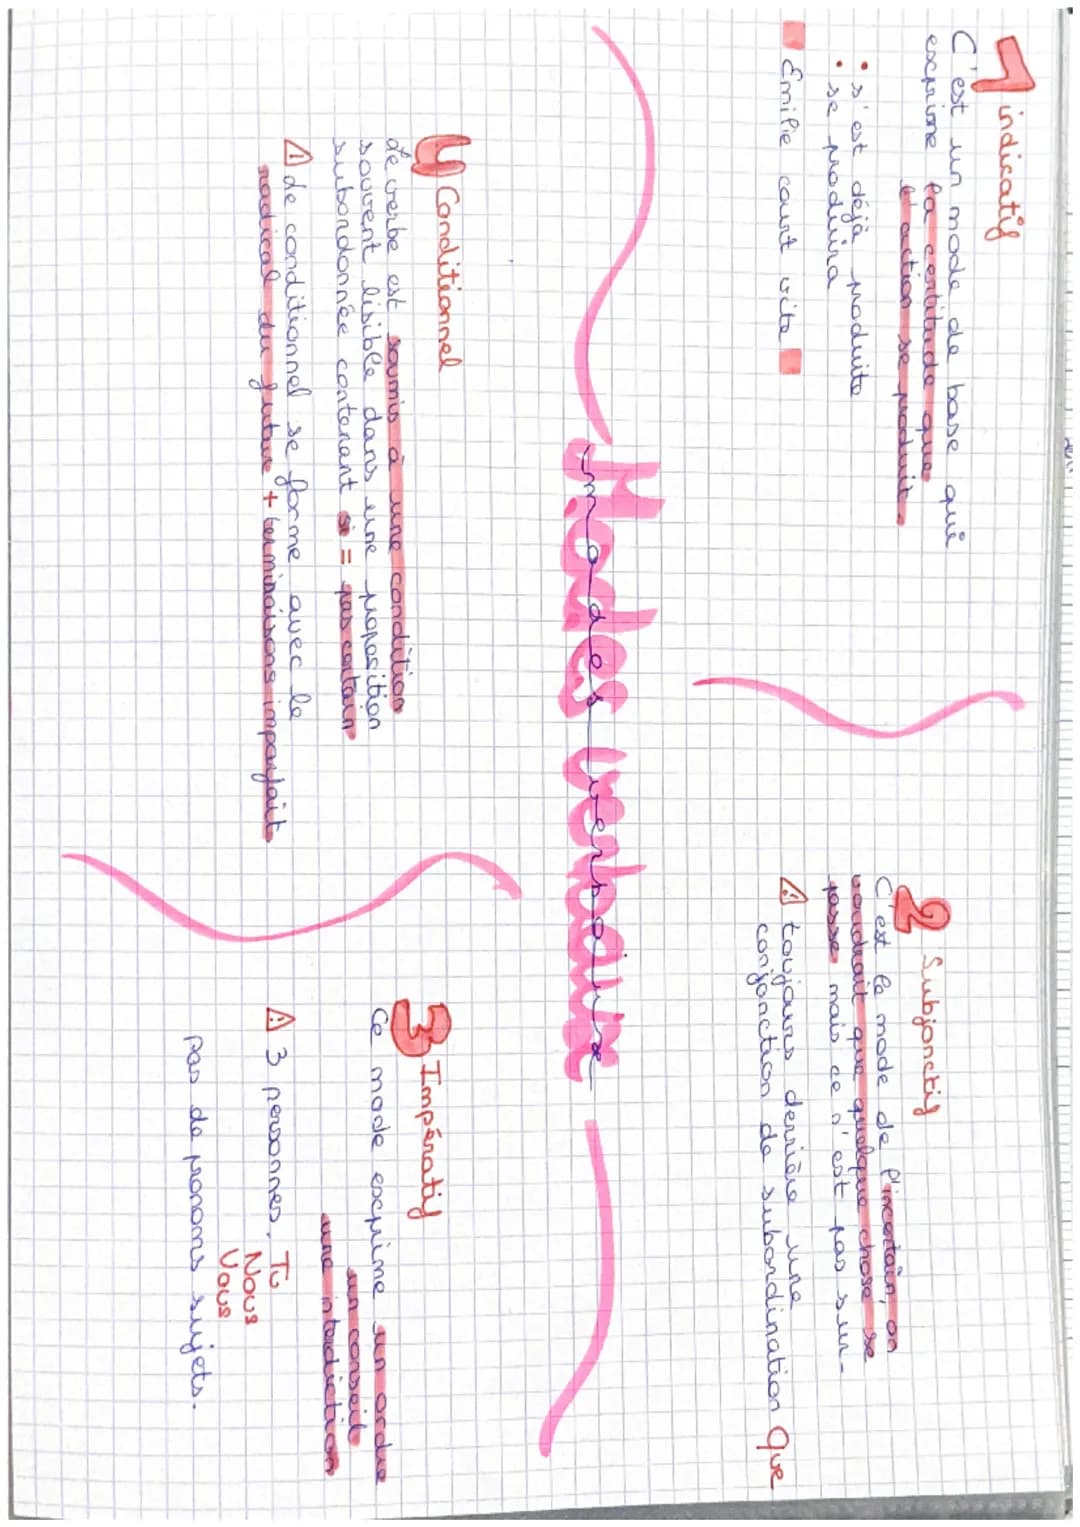 Modes verbaux
1 indicatif
C'est un mode de base qui
exprime la certitude que
l'action se produit.
• s'est déjà produite
• se produira
Emilie court vite
2 Subjonctif
C'est le mode de l'incertain, on
voudrait que quelque chose se
passe mais ce n'est pas sur.
⚠ toujours derrière une
conjonction de subordination que
4 Conditionnel
Le verbe est soumis à une condition
souvent lisible dans une proposition
subordonnée contenant si = pas certain
⚠ Le conditionnel se forme avec le
radical du futur + terminaisons imparfait
3 Impératif
Ce mode exprime un ordre
un conseil
une interdiction
⚠ 3 personnes. Tu
Nous
Vous
pas de pronoms sujets.